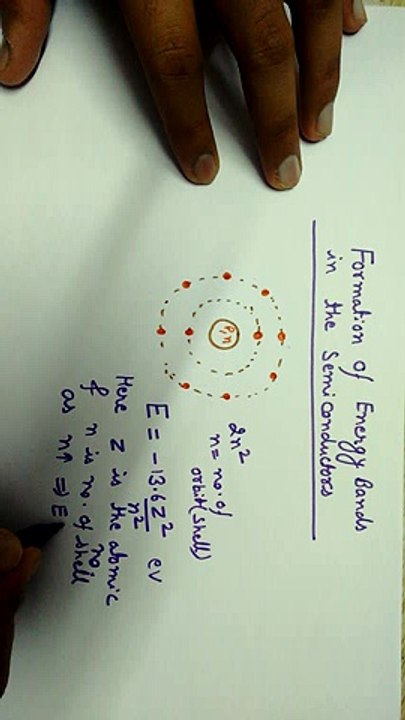 Formation of Energy Bands
in the Semiconductors
P,n
2n²
n = no. of
orbit(shells)
E = -13.6z² ev
n²
Here z is the atomic
no
& n is no. of shell
as n↑ ⇒ E